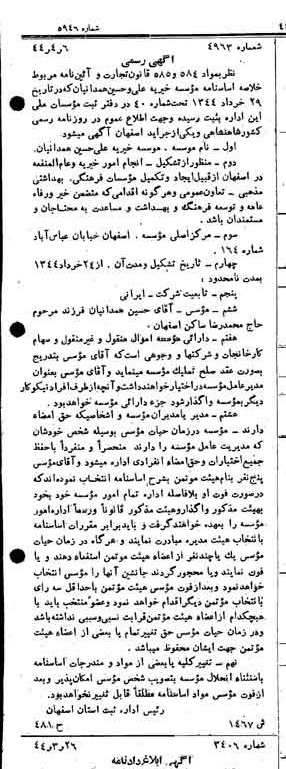 شماره ۵۹۴۶
شماره ۴۹۶۳ ۴۴ر۴ر۶
آگهی رسمی
نظر بمواد ۵۸۴ و ۵۸۵ قانون تجارت و آئین‌نامه مربوط
خلاصه اساسنامه مؤسسه خیریه علی و حسین همدانیان که در تاریخ
۲۹ خرداد ۱۳۴۴ تحت شماره ۴۰ در دفتر ثبت مؤسسات ملی
این اداره بثبت رسیده وجهت اطلاع عموم در روزنامه رسمی
کشور شاهنشاهی ویکی از جراید اصفهان آگهی میشود
اول ـ نام موسسه ـ موسسه خیریه علی حسین همدانیان.
دوم ـ منظور از تشکیل ـ انجام امور خیریه وعام‌المنفعه
در اصفهان از قبیل ایجاد وتکمیل مؤسسات فرهنگی، بهداشتی
مذهبی ـ تعاون عمومی وهرگونه اقدامی که متضمن خیر ورفاه
عامه و توسعه فرهنگ و بهداشت و مساعدت به محتاجان و
مستمندان باشد.
سوم ـ مرکز اصلی مؤسسه. اصفهان خیابان عباس‌آباد
شماره ۱۶۴.
چهارم ـ تاریخ تشکیل ومدت آن. از ۲۴ خرداد ۱۳۴۴
بمدت نامحدود؛
پنجم ـ تابعیت شرکت ـ ایرانی
ششم ـ مؤسس ـ آقای حسین همدانیان فرزند مرحوم
حاج محمدرضا ساکن اصفهان.
هفتم ـ دارائی مؤسسه اموال منقول و غیرمنقول و سهام
کارخانجات و شرکتها و وجوهی است که آقای مؤسس بتدریج
بصورت عقد صلح تملیک مؤسسه مینماید و آقای مؤسس بعنوان
مدیرعامل مؤسسه در اختیار خواهند داشت و آنچه از طرف افراد نیکوکار
دیگر بمؤسسه واگذار شود جزء دارائی مؤسسه خواهد بود.
هشتم ـ مدیر یا مدیران مؤسسه و اشخاصیکه حق امضاء
دارند ـ مؤسسه در زمان حیات مؤسس بوسیله شخص خودشان
که مدیریت عامل مؤسسه را دارند منحصراً و منفرداً باحفظ
جمیع اختیارات وحق امضاء انفرادی اداره میشود و آقای مؤسس
پنج نفر بنام هیئت مؤتمن بشرح اساسنامه انتخاب نموده‌اند که
درصورت فوت او بلافاصله اداره تمام امور مؤسسه خود بخود
بهیئت مذکور واگذار وهیئت مذکور قانوناً ورسماً اداره امور
مؤسسه را بعهده خواهند گرفت و باید برابر مقررات اساسنامه
بانتخاب هیئت مدیره مبادرت نمایند و هرگاه در زمان حیات
مؤسس یک یا چند نفر از اعضاء هیئت مؤتمن استعفاء دهند و یا
فوت نمایند ویا محجور گردند جانشین آنها را مؤسس انتخاب
خواهد نمود وبعد از فوت مؤسس هیئت مؤتمن باحداقل سه رای
بانتخاب مؤتمن دیگر اقدام خواهد نمود وعضو منتخب باید با
هیچکدام از اعضاء هیئت مؤتمن قرابت نسبی وسببی نداشته باشد
ودر زمان حیات مؤسس حق تغییر تمام یا بعضی از اعضاء هیئت
مؤتمن جهت ایشان محفوظ میباشد.
نهم ـ تغییر کلیه یا بعضی از مواد و مندرجات اساسنامه
باستثناء انحلال مؤسسه بتصویب شخص مؤسس امکان‌پذیر وبعد
از فوت مؤسس مواد اساسنامه مطلقاً قابل تغییر نخواهد بود.
رئیس اداره ثبت استان اصفهان
ش ۱۴۶۷ ح ۴۸۱
شماره ۳۴۰۶ ۴۴ر۳ر۲۶
آگهی ابلاغ دادنامه